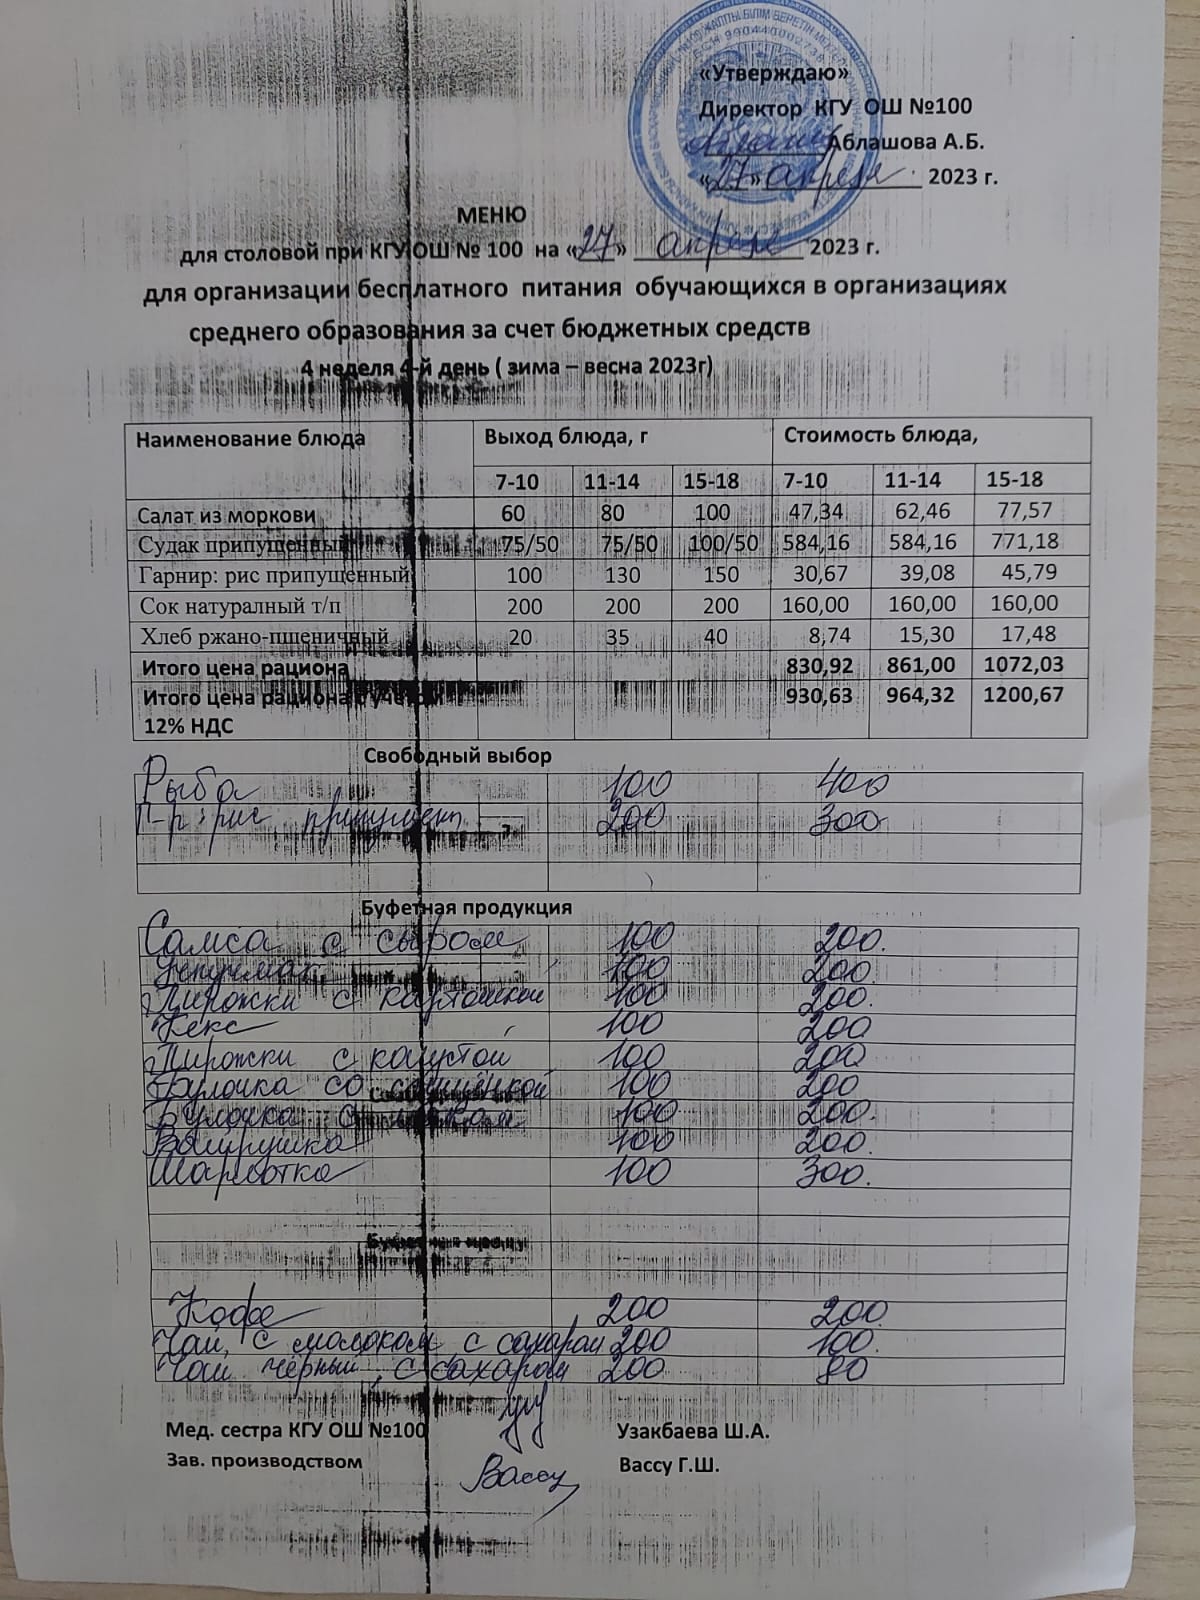 «Утверждаю»
Директор КГУ ОШ №100
Аблашова А.Б.
«27» апреля 2023 г.
МЕНЮ
для столовой при КГУ ОШ № 100 на «27» апреля 2023 г.
для организации бесплатного питания обучающихся в организациях
среднего образования за счет бюджетных средств
4 неделя 4-й день ( зима – весна 2023г)
Наименование блюда Выход блюда, г Стоимость блюда,
7-10 11-14 15-18 7-10 11-14 15-18
Салат из моркови 60 80 100 47,34 62,46 77,57
Судак припущенный 75/50 75/50 100/50 584,16 584,16 771,18
Гарнир: рис припущенный 100 130 150 30,67 39,08 45,79
Сок натуралный т/п 200 200 200 160,00 160,00 160,00
Хлеб ржано-пшеничный 20 35 40 8,74 15,30 17,48
Итого цена рациона 830,92 861,00 1072,03
Итого цена рациона с учетом 930,63 964,32 1200,67
12% НДС
Свободный выбор
Рыба 100 400
Г-р: рис припущен 200 300
Буфетная продукция
Самса с сыром 100 200.
100 200.
Пирожки с картошкой 100 200.
Кекс 100 200
Пирожки с капустой 100 200
Булочка со сгущёнкой 100 200
Булочка с маком 100 200.
Ватрушка 100 200.
Шарлотка 100 300.
Кофе 200 200.
Чай, с молоком с сахаром 200 100.
Чай чёрный, с сахаром 200 80
Мед. сестра КГУ ОШ №100 Узакбаева Ш.А.
Зав. производством Вассу Вассу Г.Ш.